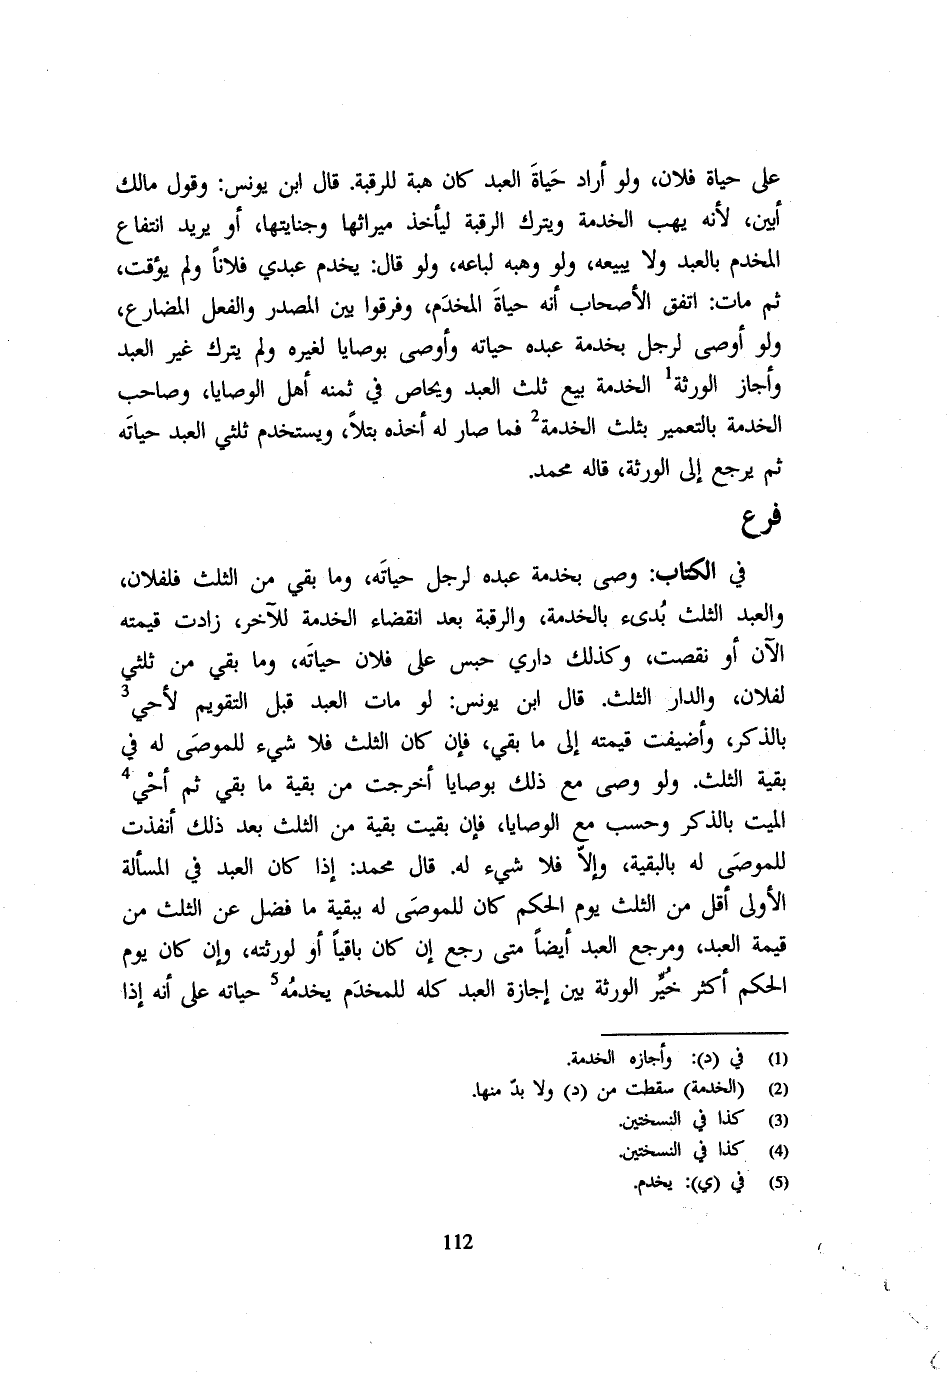 على حياة فلان، ولو أراد حَياةَ العبد كان هبة للرقبة. قال ابن يونس: وقول مالك
أبين، لأنه يهب الخدمة ويترك الرقبة ليأخذ ميراثها وجنايتها، أو يريد انتفاع
المخدم بالعبد ولا يبيعه، ولو وهبه لباعه، ولو قال: يخدم عبدي فلاناً ولم يؤقت،
ثم مات: اتفق الأصحاب أنه حياةَ المخدَم، وفرقوا بين المصدر والفعل المضارع،
ولو أوصى لرجل بخدمة عبده حياته وأوصى بوصايا لغيره ولم يترك غير العبد
وأجاز الورثة1 الخدمة بيع ثلث العبد ويحاص في ثمنه أهل الوصايا، وصاحب
الخدمة بالتعمير بثلث الخدمة2 فما صار له أخذه بتلاً، ويستخدم ثلثي العبد حياتَه
ثم يرجع إلى الورثة، قاله محمد.
فرع
في الكتاب: وصى بخدمة عبده لرجل حياتَه، وما بقي من الثلث فلفلان،
والعبد الثلث بُدىء بالخدمة، والرقبة بعد انقضاء الخدمة للآخر، زادت قيمته
الآن أو نقصت، وكذلك داري حبس على فلان حياتَه، وما بقي من ثلثي
لفلان، والدار الثلث. قال ابن يونس: لو مات العبد قبل التقويم لأحي3
بالذكر، وأضيفت قيمته إلى ما بقي، فإن كان الثلث فلا شيء للموصَى له في
بقية الثلث. ولو وصى مع ذلك بوصايا أخرجت من بقية ما بقي ثم أحْي4
الميت بالذكر وحسب مع الوصايا، فإن بقيت بقية من الثلث بعد ذلك أنفذت
للموصَى له بالبقية، وإلاّ فلا شيء له. قال محمد: إذا كان العبد في المسألة
الأولى أقل من الثلث يوم الحكم كان للموصَى له ببقية ما فضل عن الثلث من
قيمة العبد، ومرجع العبد أيضاً متى رجع إن كان باقياً أو لورثته، وإن كان يوم
الحكم أكثر خُيِّر الورثة بين إجازة العبد كله للمخدَم يخدمُه5 حياته على أنه إذا
(1) في (د): وأجازه الخدمة.
(2) (الخدمة) سقطت من (د) ولا بدّ منها.
(3) كذا في النسختين.
(4) كذا في النسختين.
(5) في (ي): يخدم.
112